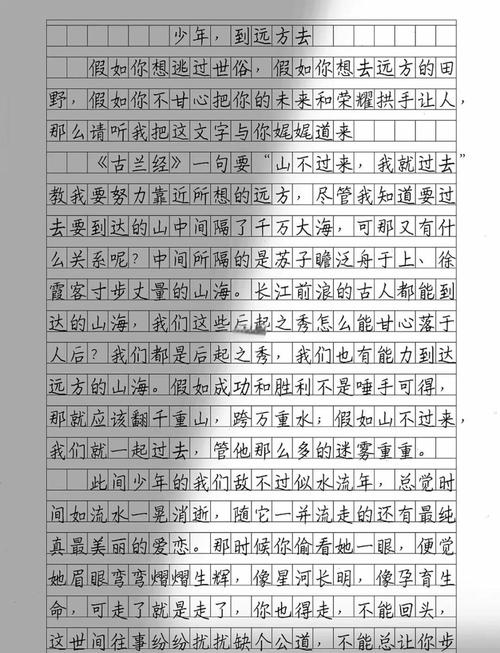 少年，到远方去
假如你想逃过世俗，假如你想去远方的田
野，假如你不甘心把你的未来和荣耀拱手让人，
那么请听我把这文字与你娓娓道来
《古兰经》一句要“山不过来，我就过去”
教我要努力靠近所想的远方，尽管我知道要过
去要到达的山中间隔了千万大海，可那又有什
么关系呢？中间所隔的是苏子瞻泛舟于上、徐
霞客寸步丈量的山海。长江前浪的古人都能到
达的山海，我们这些后起之秀怎么能甘心落于
人后？我们都是后起之秀，我们也有能力到达
远方的山海。假如成功和胜利不是唾手可得，
那就应该翻千重山，跨万重水；假如山不过来，
我们就一起过去，管他那么多的迷雾重重。
此间少年的我们敌不过似水流年，总觉时
间如流水一晃消逝，随它一并流走的还有最纯
真最美丽的爱恋。那时候你偷看她一眼，便觉
她眉眼弯弯熠熠生辉，像星河长明，像孕育生
命，可走了就是走了，你也得走，不能回头，
这世间往事纷纷扰扰缺个公道，不能总让你步